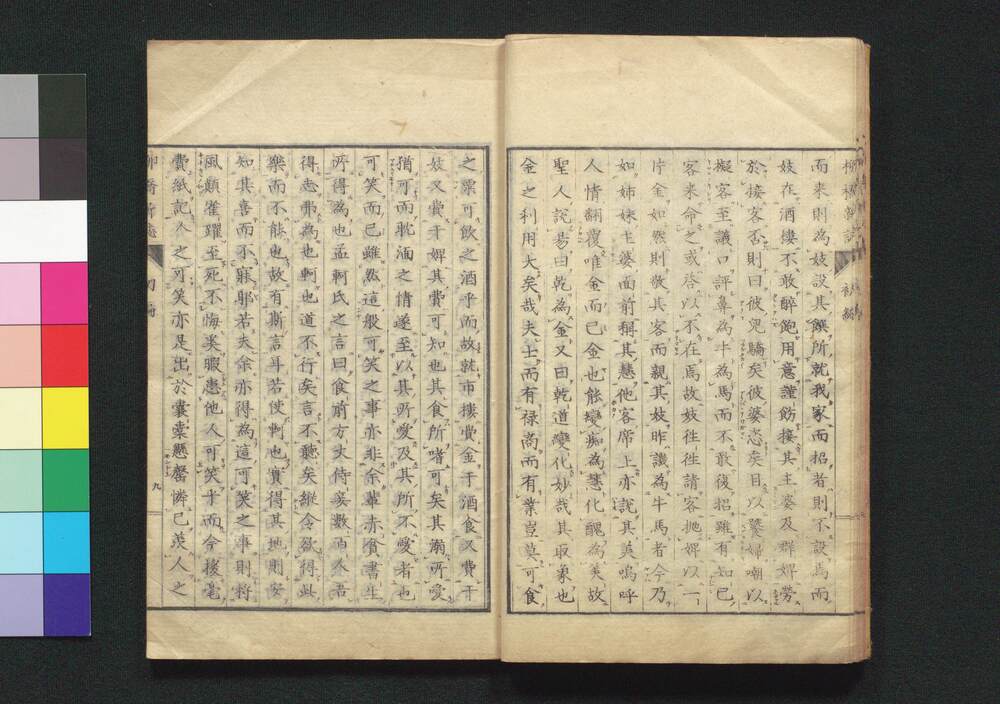 而来則為妓設其饌所就我家而招者則不設焉而
妓在酒楼不敢酔飽用意謹飭接其主婆及群婢労
於接客否則曰彼児驕矣彼婆恣矣目以嬖婦嘲以
擬客至議口評鼻為牛為馬而不敢復招雖有知己
客来命之或答以不在焉故妓往往請客抛婢以一
片金如然則敬其客而親其妓昨譏為牛馬者今乃
如姉妹主婆面前稱其慧他客席上亦説其美嗚呼
人情翻覆唯金而已金也能變痴為慧化醜為美故
聖人説易曰乾為金又曰乾道變化妙哉其取象也
金之利用大矣哉夫士而有禄商而有業豈莫可食
之粟可飲之酒乎而故就市楼費金于酒食又費于
妓又費于婢其費可知也其食所嗜可矣其溺所愛
猶可而耽湎之情遂至以其所愛及其所不愛者也
可笑而已雖然這般可笑之事亦非余輩赤貧書生
所得為也孟軻氏之言曰食前方丈侍妾数百人吾
得志弗為也軻也道不行矣言不聴矣縦令欲得此
樂而不能也故有斯言耳若使軻也實得其地則安
知其喜而不為耶若夫余亦得為這可笑之事則将
風顛雀躍至死不悔奚暇患他人可笑乎而今援毫
費紙記人之可笑亦是出於嚢橐懸罄憐己羨人之
九